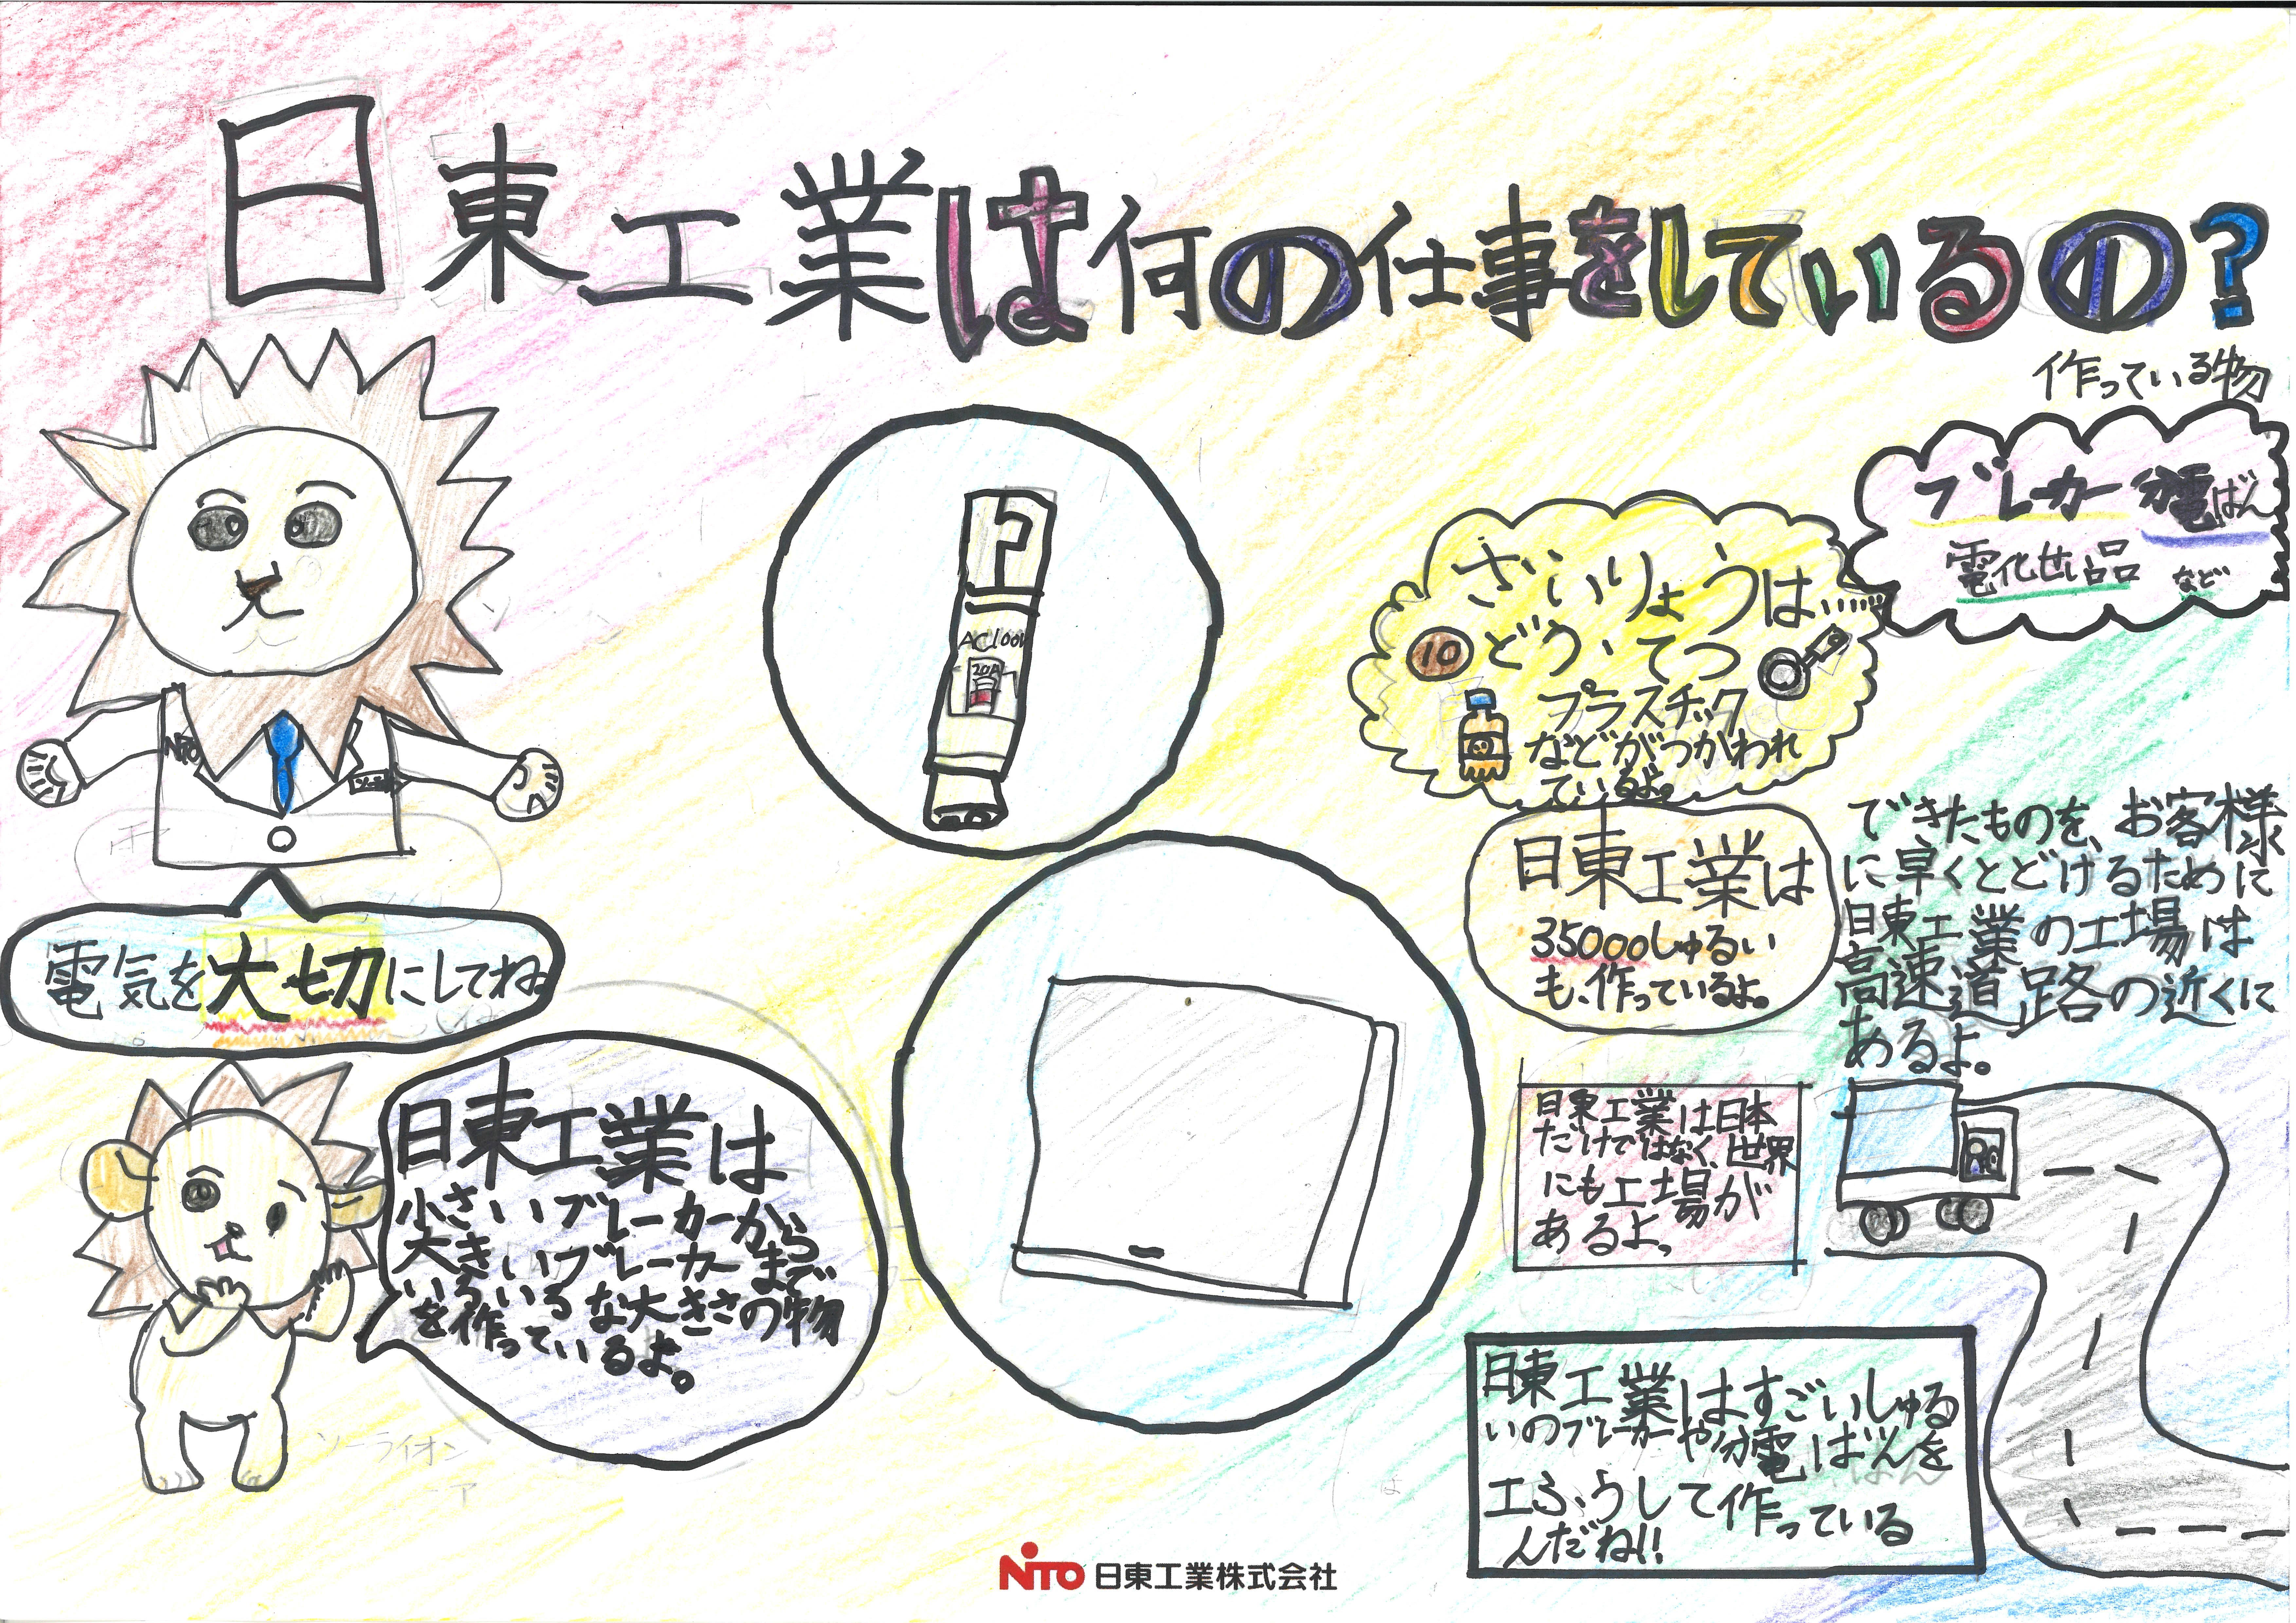 日東工業は何の仕事をしているの?
作っている物
ブレーカー 分電ばん
電化せい品 など
さいりょうは……
10 どう、てつ
プラスチック
などがつかわれ
ているよ。
AC100V
20A
NITO
電気を大切にしてね
日東工業は
35000しゅるい
も、作っているよ。
できたものを、お客様
に早くとどけるために
日東工業の工場は
高速道路の近くに
あるよ。
日東工業は
小さいブレーカーから
大きいブレーカーまで
いろいろな大きさの物
を作っているよ。
日東工業は日本
だけではなく、世界
にも工場が
あるよ。
日東工業はすごいしゅる
いのブレーカーや分電ばんを
工ふうして作っている
んだね!!
ソーライオン
NITO 日東工業株式会社